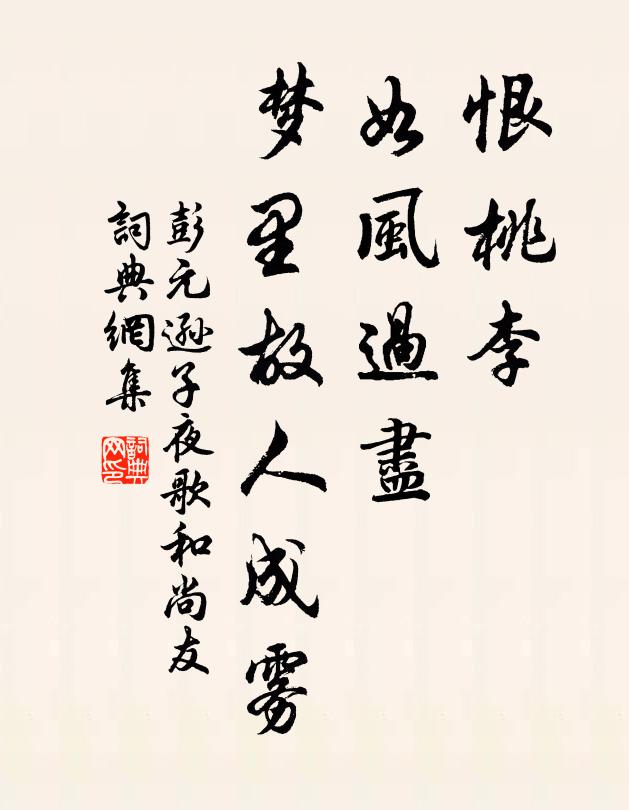 恨桃李
如風過盡
梦里故人成雾
彭元遜子夜歌和尚友
詞典網集
詞典網印